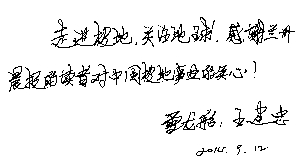 走进极地,关注地球!感谢兰州
晨报的读者对中国极地事业的关心!
王建忠
2014.9.12